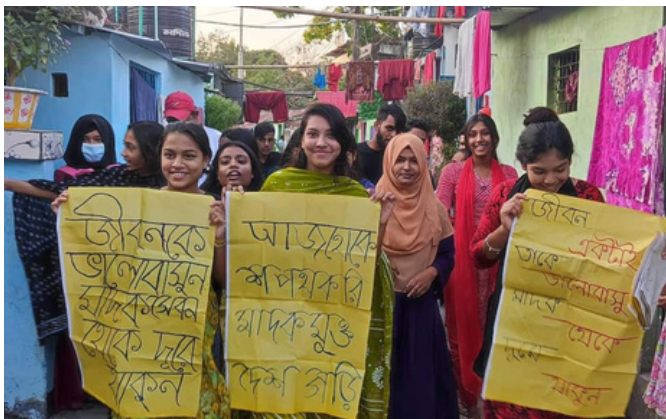 জীবনকে
ভালোবাসুন
মাদকসেবন
থেকে দূরে
থাকুন
আজথেকে
শপথকরি
মাদকমুক্ত
দেশ গড়ি
জীবন
একটাই
তাকে
ভালোবাসু
মাদক
থেকে
থাকুন